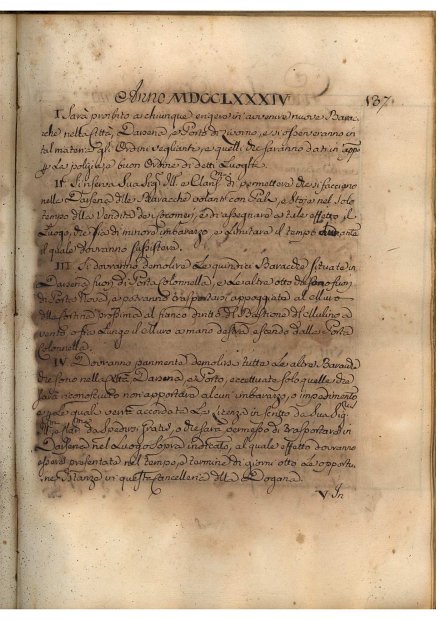 Anno MDCCLXXXIV 137.
I. Sarà proibito a chiunque erigere in avvenire nuove Barac=
che nella Città, Darsena, e Porto di Livorno, e si osserveranno in
tal materia gli Ordini veglianti, e quelli che saranno dati in app.o
p la polizia, e buon Ordine di detti Luoghi.
II. Si riserva Sua Sig. Ill. e Clariss. di permettere che si facciano
nella Darsena delle Baracche volanti con Pali, e Stoje nel solo
tempo della Vendita de Cocomeri, e di assegnare a tale effetto il
Luogo, che sia di minore imbarazzo, e limitare il tempo durante
il quale dovranno sussistere.
III. Si dovranno demolire Le quindici Baracche situate in
Darsena fuori di Porta Colonnella, e Le altre otto che sono fuori
di Porta Nuova, e potranno trasportarsi appoggiate al Muro
della Cortina prossima al fianco dritto del Bastione di Mulino a
vento, o sia Lungo il Muro a mano destra escendo dalla Porta
Colonnella.
IV. Dovranno parimente demolirsi tutte Le altre Baracche
che sono nella Città, Darsena, e Porto, eccettuate solo quelle che
sarà riconosciuto non apportare alcun imbarazzo, o impedimento
e p le quali verrà accordata La Licenza in scritto da Sua Sig.
Ill. e Clar. da spedirsi gratis, o che sarà permesso di trasportare in
Darsena nel Luogo sopra indicato, al quale effetto dovranno
essere presentate nel tempo, e termine di giorni otto Le opportu=
ne Istanze in questa Cancelleria della Dogana.
V. In